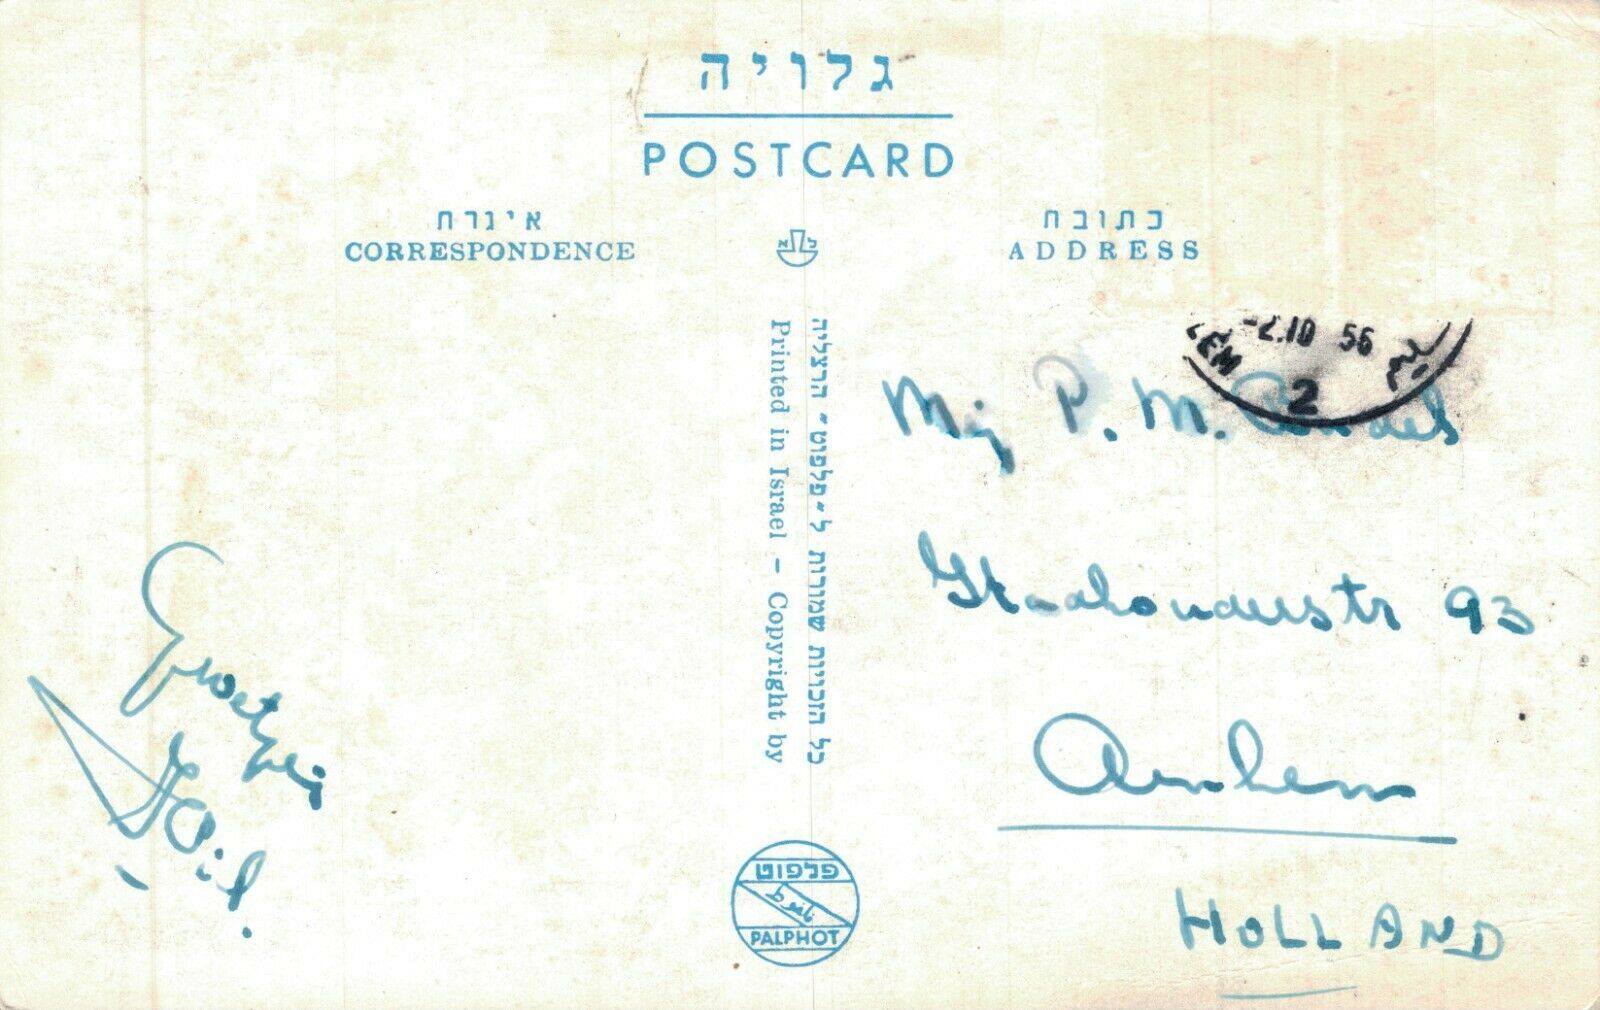 גלויה
POSTCARD
אינרת
CORRESPONDENCE
כתובת
ADDRESS
כל הזכויות שמורות ל״פלפוט״ הרצליה
Printed in Israel – Copyright by
פלפוט
PALPHOT
LEM -2.10 56
2
Mej P. M.
93
Arnhem
HOLLAND